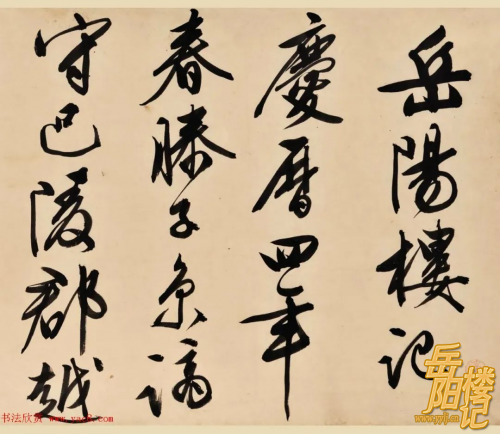 岳陽樓记
慶曆四年
春滕子京謫
守巴陵郡越
岳阳楼记
书法欣赏